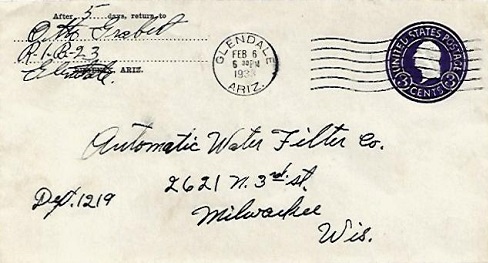 After 5 days, return to
Otto Grabet
R-1-B-23
Glendale, ARIZ.
GLENDALE
FEB 6
6 30 PM
1933
ARIZ.
UNITED STATES POSTAGE
3 CENTS 3
Automatic Water Filter Co.
2621 N. 3rd st.
Dept. 1219
Milwaukee
Wis.